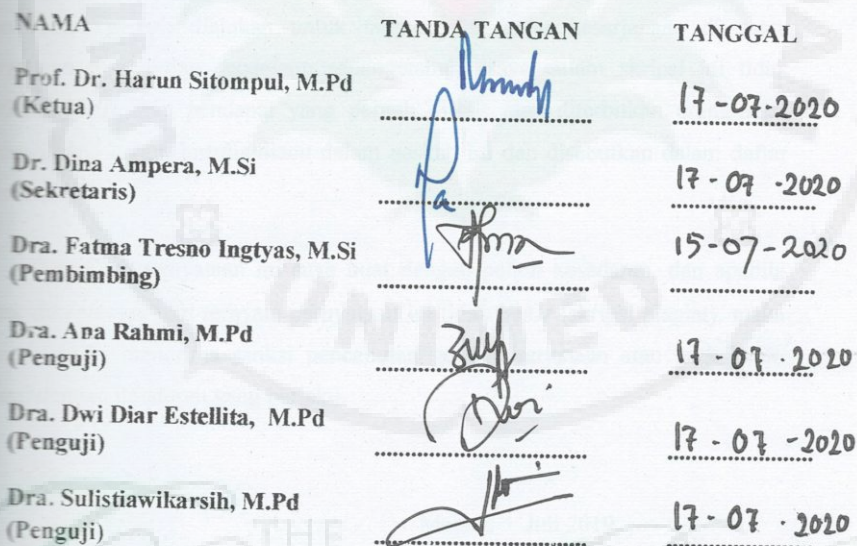 NAMA TANDA TANGAN TANGGAL
Prof. Dr. Harun Sitompul, M.Pd
(Ketua) 17-07-2020
Dr. Dina Ampera, M.Si
(Sekretaris) 17-07-2020
Dra. Fatma Tresno Ingtyas, M.Si 15-07-2020
(Pembimbing)
Dra. Ana Rahmi, M.Pd
(Penguji) 17-07-2020
UNIMED
Dra. Dwi Diar Estellita, M.Pd
(Penguji) 17-07-2020
Dra. Sulistiawikarsih, M.Pd
(Penguji) 17-07-2020
THE